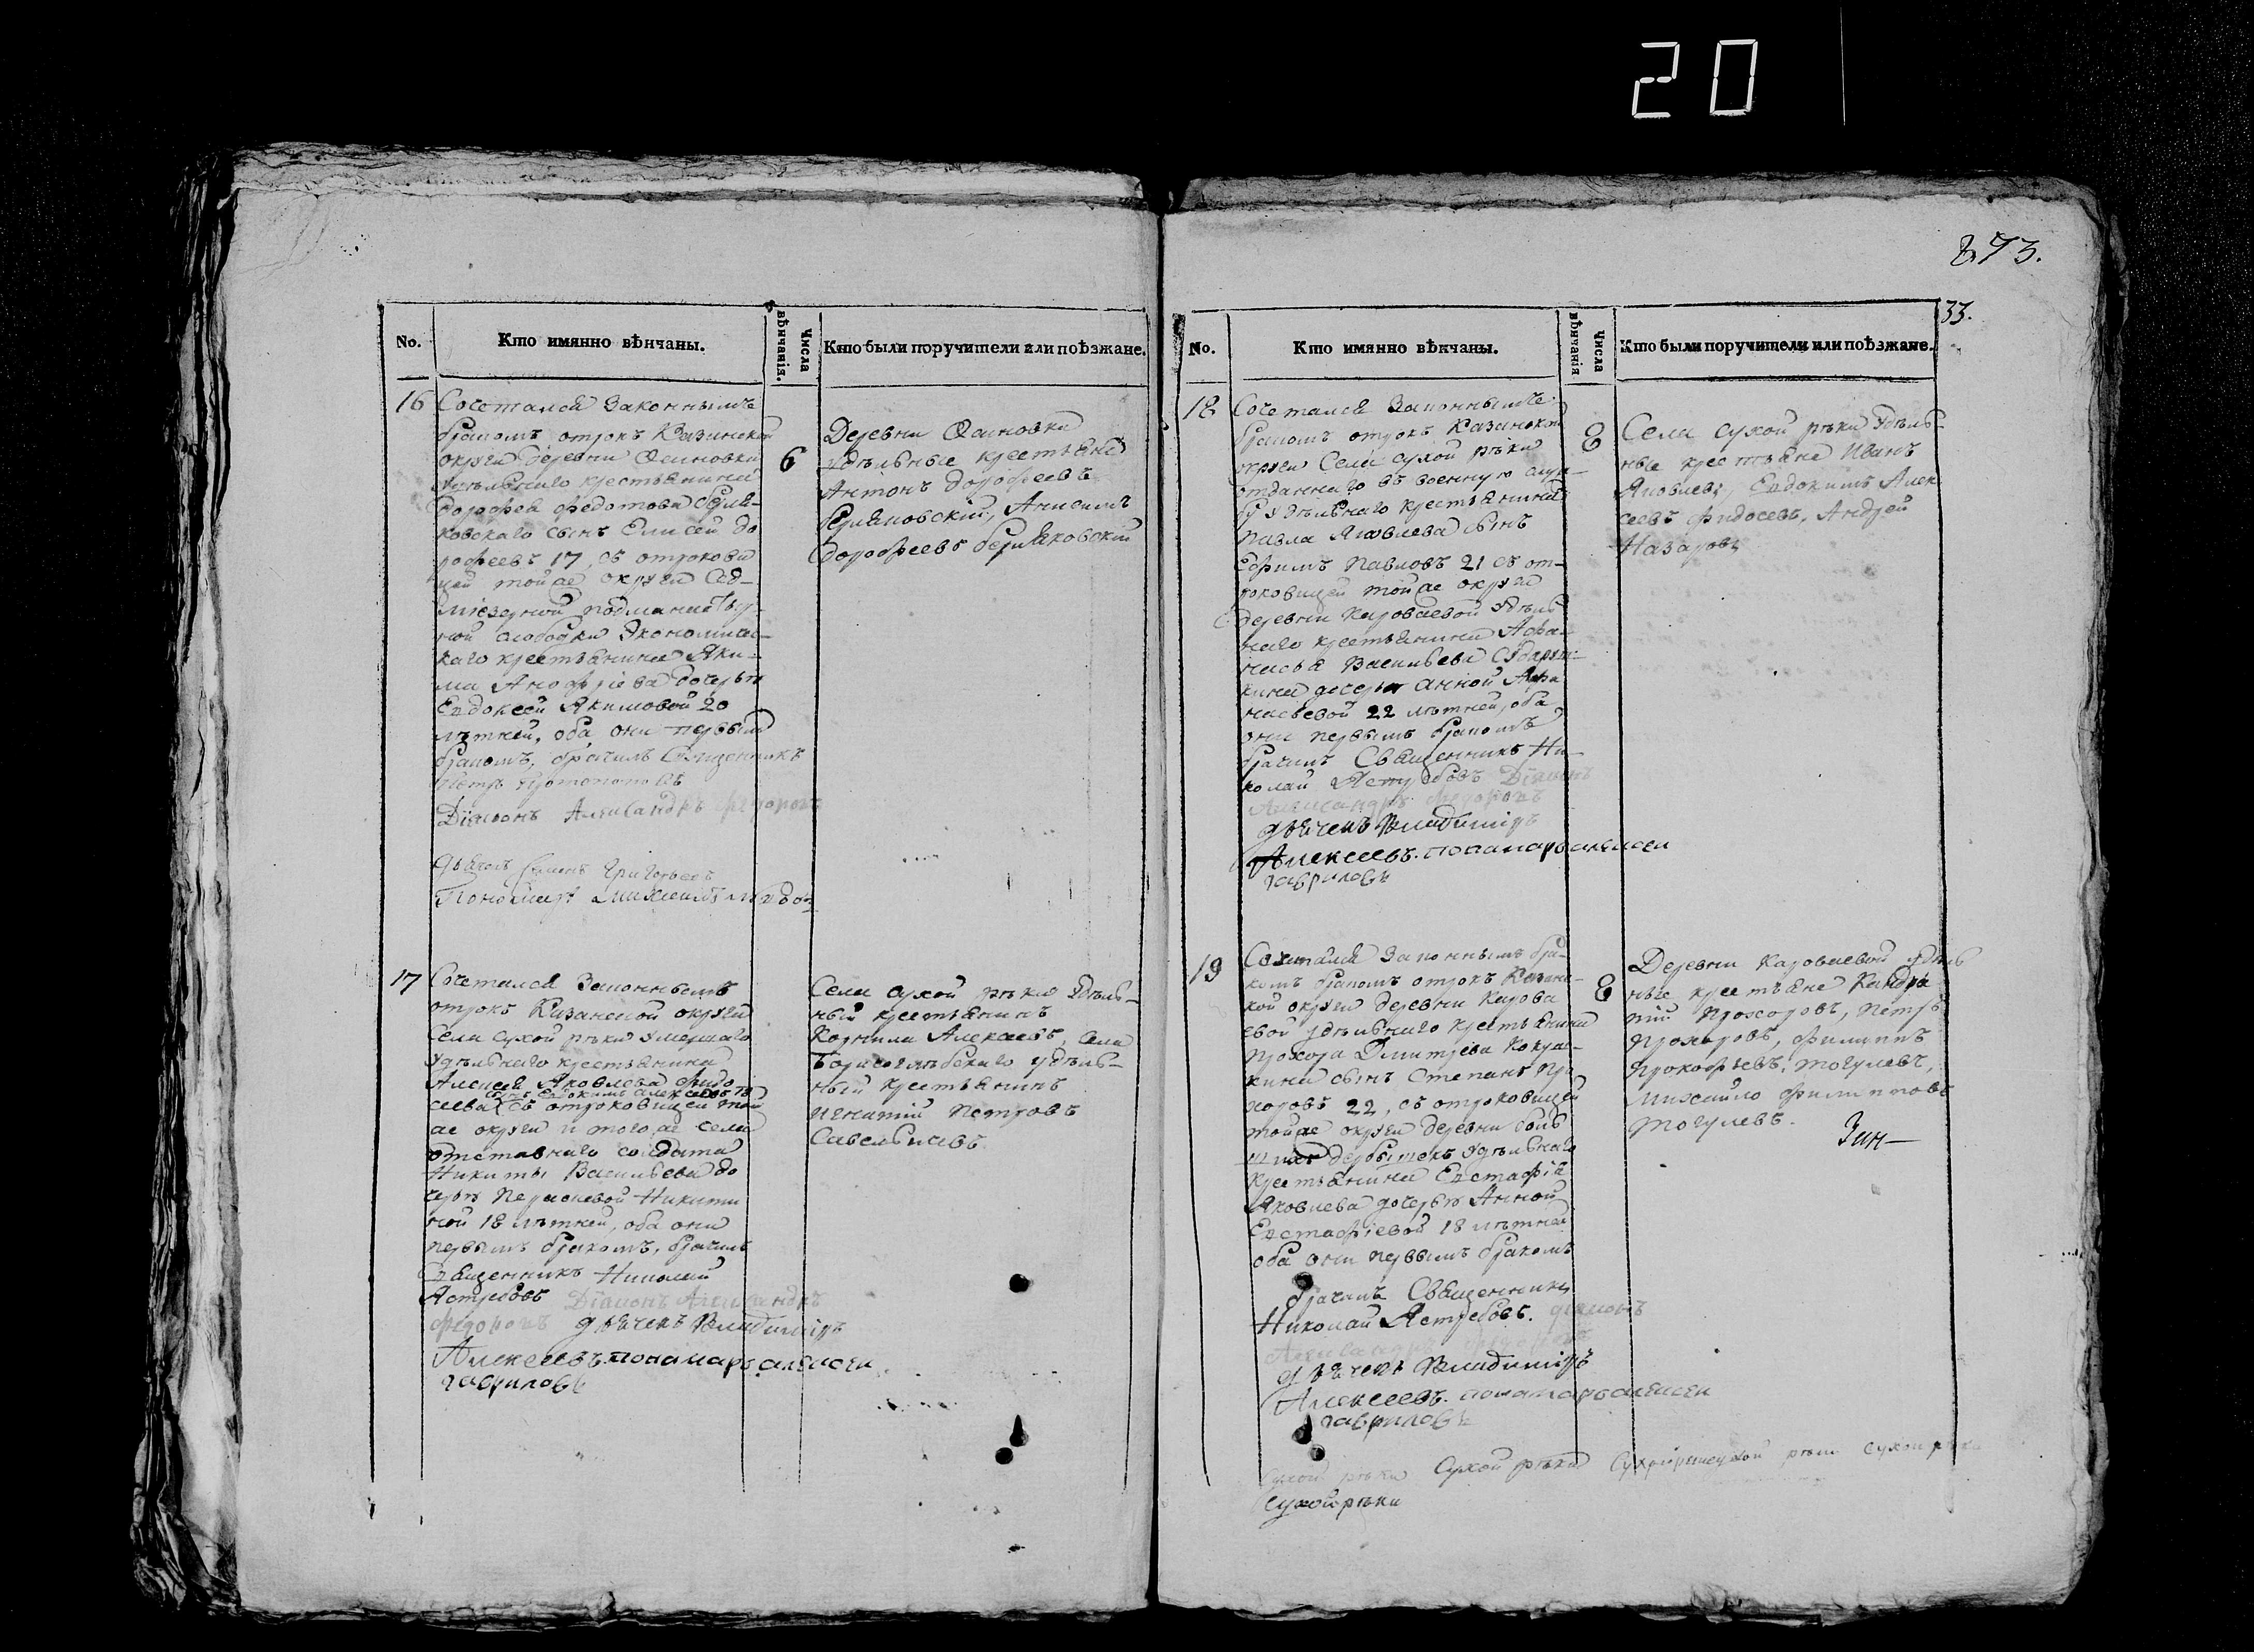 20
873.
33.
No.
Кто имянно вѣнчаны.
Числа
вѣнчанія.
Кто были поручители или поѣзжане.
16
Сочетался Законнымъ
бракомъ отрокъ Казанской
округи деревни Осиновки
удѣльнаго крестьянина
Дорофея Федотова
сынъ Елисей до
рофеевъ 17, съ отрокови
цей тойже округи
подмонастыр
ной слободки Экономичес
каго крестьянина Яки-
ма дочерью
Евдокеей Якимовой 20
лѣтней, оба они первымъ
бракомъ, брачилъ Священникъ
Петръ
Діаконъ Александръ Федоровъ
дьячекъ Григорьевъ
Пономарь
6
Деревни Осиновки
удѣльные крестьяне
Антонъ Дорофеевъ
Анисимъ
Дорофеевъ
17
Сочетался Законнымъ
отрокъ Казанской округи
Села сухой рѣки умершаго
удѣльнаго крестьянина
Алексея Яковлева Фидо
сынъ Евдокимъ Алексеевъ 18
сеева съ отроковицей той
же округи и того же села
отставнаго солдата
Никиты Васильева до
черью Никити
ной 18 лѣтней, оба они
первымъ бракомъ, брачилъ
Священникъ Николай
Ястребовъ Діаконъ Александръ
Федоровъ дьячекъ Владимиръ
Алексеевъ. понамарь алексей
гавриловъ
Села сухой рѣки удѣль-
ный крестьянинъ
Корнила Алексеевъ, села
Борисоглѣбскаго удѣль-
ный крестьянинъ
Игнатій Петровъ
Савельичевъ
No.
Кто имянно вѣнчаны.
Числа
вѣнчанія
Кто были поручители или поѣзжане.
18
Сочетался Законнымъ
бракомъ отрокъ Казанской
округи Села сухой рѣки
отданнаго въ военную служ-
бу удѣльнаго крестьянина
Павла Яковлева сынъ
Ефимъ Павловъ 21 съ от-
роковицей тойже округи
деревни Караваевой удѣль
наго крестьянина Афа-
насья Васильева
дочерью анной Афа
насьевой 22 лѣтней, оба
они первымъ бракомъ
брачилъ Священникъ Ни-
колай Ястребовъ Діаконъ
Александръ Федоровъ
дьячекъ Владимиръ
Алексеевъ. понамарь алексей
гавриловъ
8
Села сухой рѣки удѣль-
ные крестьяне Иванъ
Яковлевъ, Евдокимъ Алек
сеевъ Фидосевъ, Андрей
Назаровъ
19
Сочетался Законнымъ бра-
комъ бракомъ отрокъ Казанс-
кой округи деревни Карова
евой удѣльнаго крестьянина
Прохора Дмитріева Кокуш-
кина сынъ Степанъ Про
хоровъ 22, съ отроковицей
тойже округи деревни боль
шихъ дербышекъ удѣльнаго
крестьянина Евстафія
Яковлева дочерью Анной
Евстафіевой 18 лѣтней
оба они первымъ бракомъ
брачилъ Священникъ
Николай Ястребовъ. діаконъ
Александръ Федоровъ
дьячекъ Владимиръ
Алексеевъ. понамарь алексей
гавриловъ
8
Деревни Караваевой удѣль
ные крестьяне Кандра
тій Прохоровъ, Петръ
Прохоровъ, Филиппъ
Прокофьевъ, Могулевъ,
Михайло Филипповъ
Могулевъ.
Сухой рѣки Сухой рѣки сухой рѣки сухой рѣки
сухой рѣки